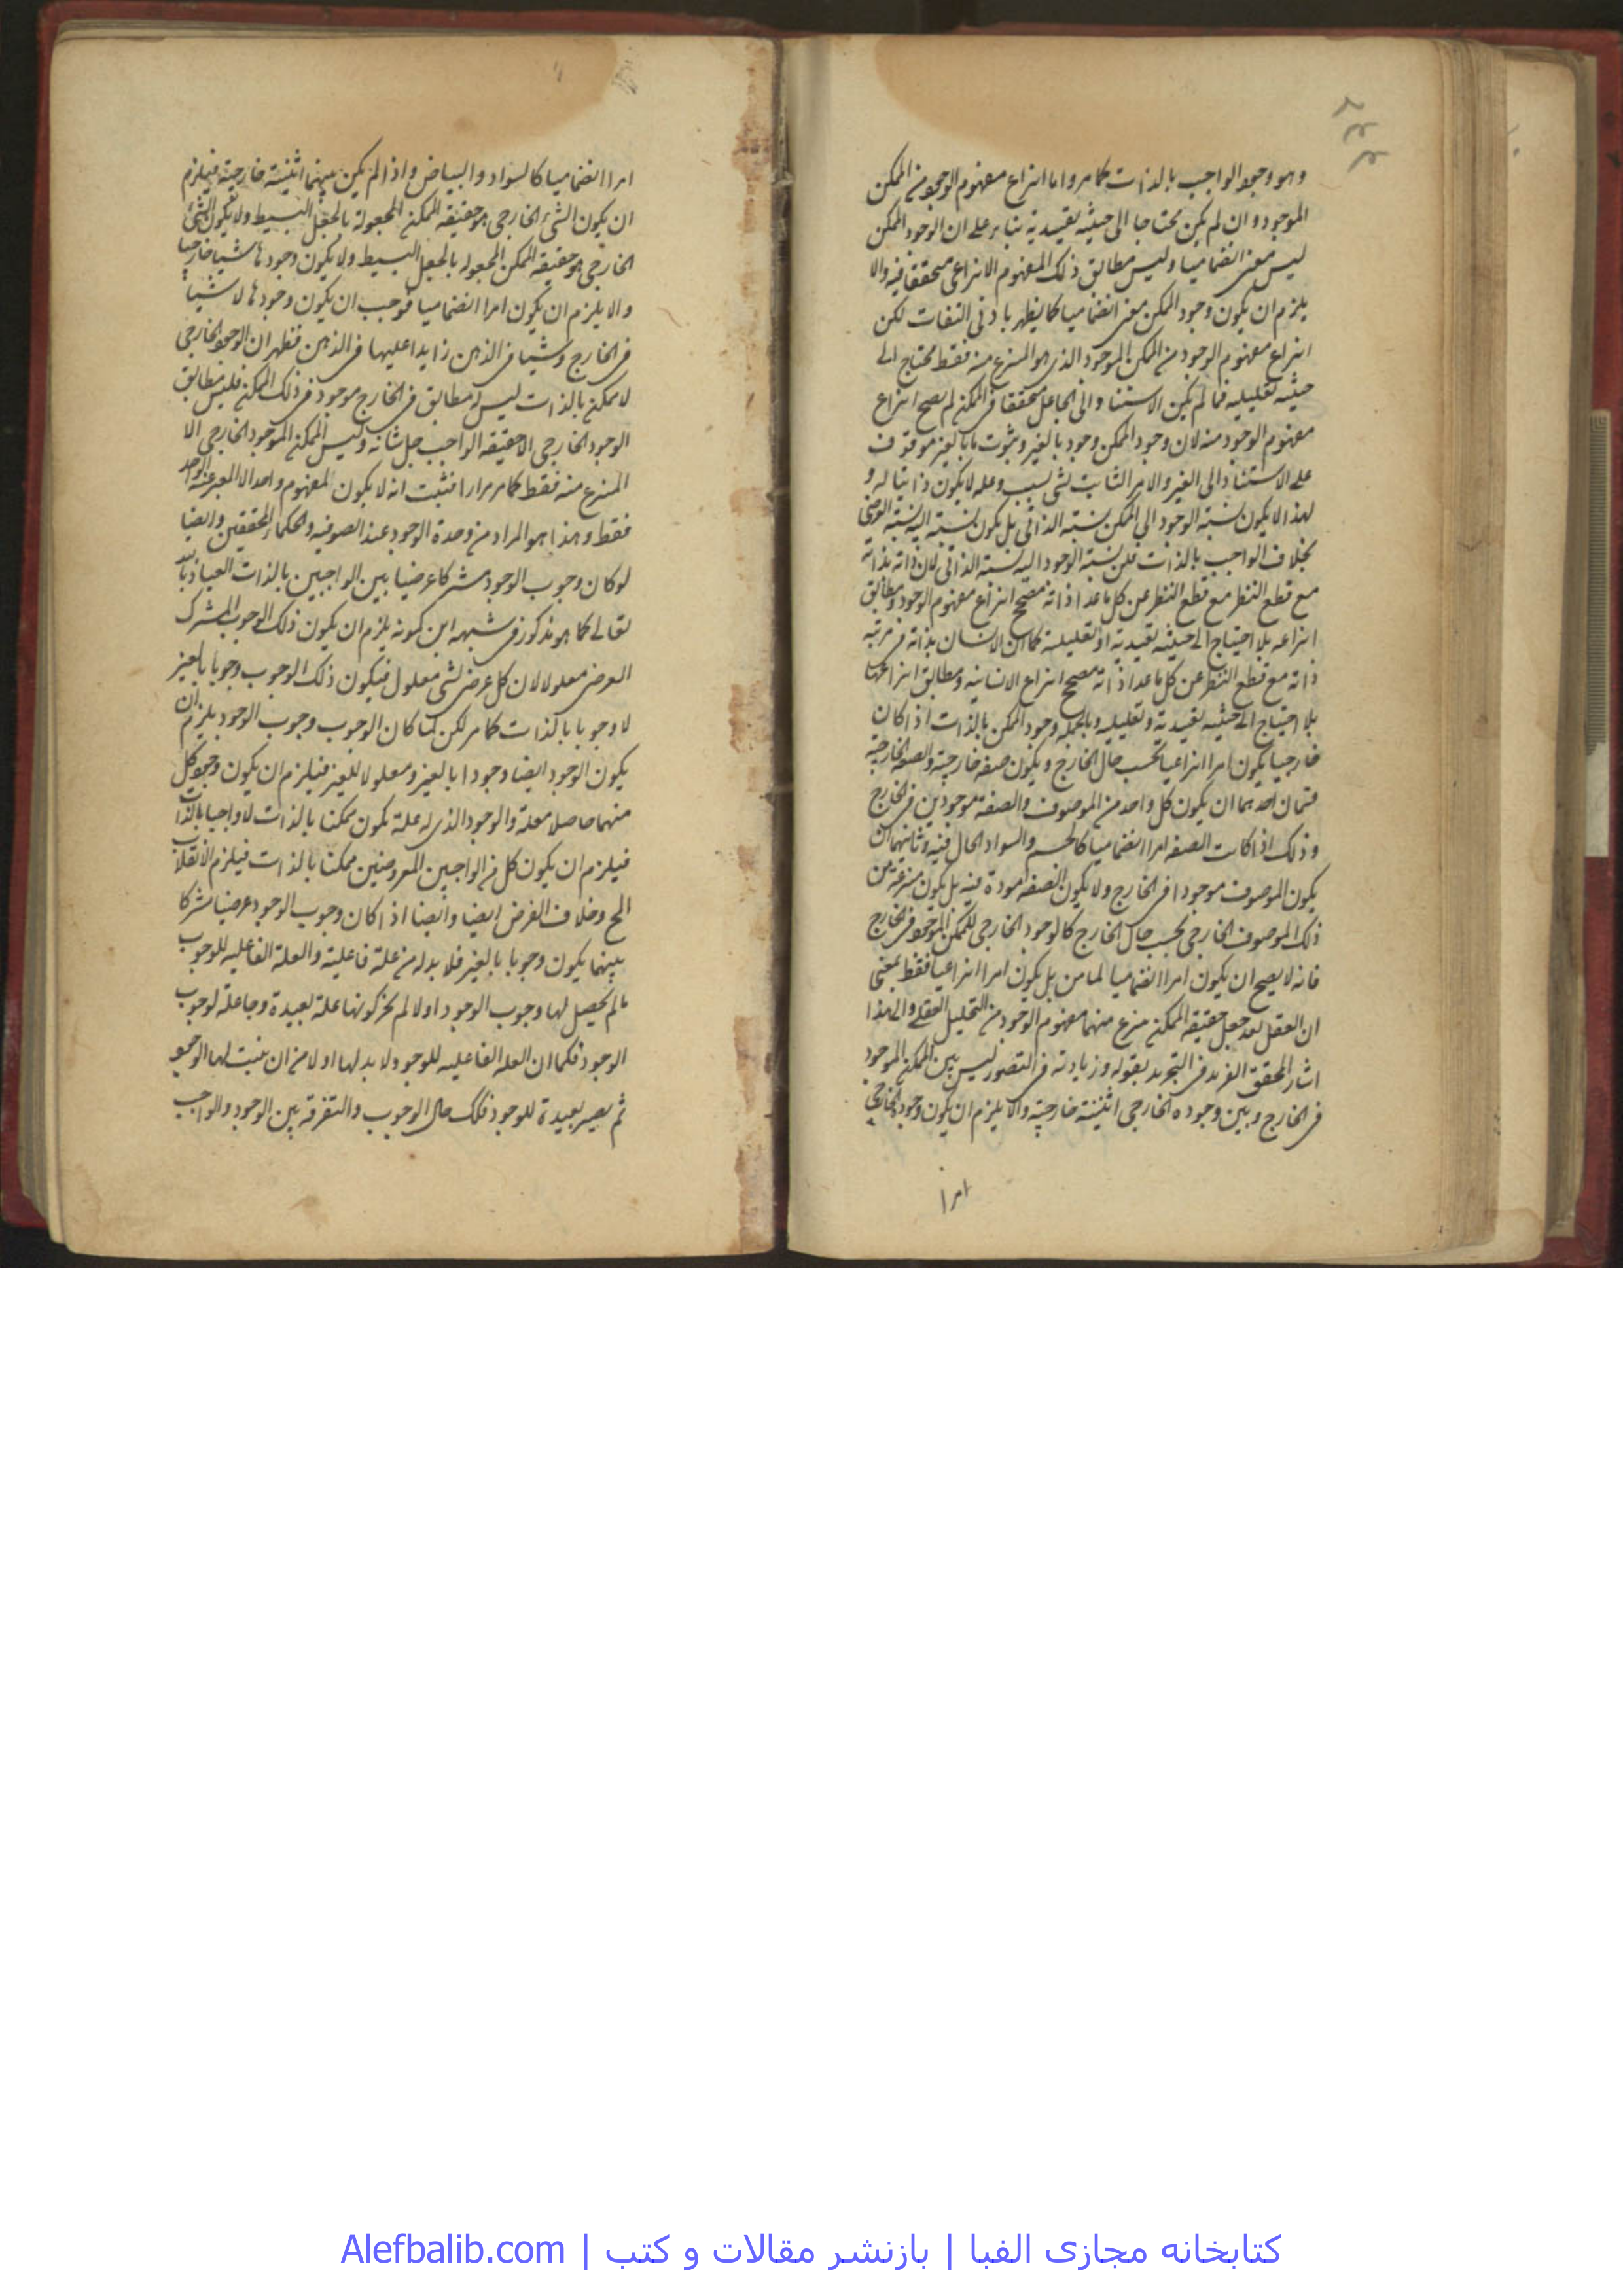 وهو وجود الواجب بالذات كما مر واما انتزاع مفهوم الوجود من الممكن
الموجود وان لم يكن محتاجا الى حيثية تقييدية بناء على ان الوجود الممكن
ليس معنى انضماميا وليس مطابق ذلك المفهوم الانتزاعى متحققا فيه والا
يلزم ان يكون وجود الممكن معنى انضماميا كما يظهر بادنى التفات لكن
انتزاع مفهوم الوجود من الممكن الموجود الذى هو المنتزع منه فقط محتاج الى
حيثية تعليلية فما لم يكن الاستناد الى الجاعل متحققا فى الممكن لم يصح انتزاع
مفهوم الوجود منه لان وجود الممكن وجود بالغير وثبوت ما بالغير موقوف
على الاستناد الى الغير والامر الثابت لشى بسبب وعلة لا يكون ذاتيا له و
لهذا لا يكون نسبة الوجود الى الممكن نسبة الذاتى بل يكون نسبة اليه نسبة العرضى
بخلاف الواجب بالذات فان نسبة الوجود اليه نسبة الذاتى لان ذاته بذاته
مع قطع النظر مع قطع النظر عن كل ما عدا ذاته مصحح انتزاع مفهوم الوجود ومطابق
انتزاعه بلا احتياج الى حيثية تقييدية او تعليلية كما ان الانسان بذاته فى مرتبة
ذاته مع قطع النظر عن كل ما عدا ذاته مصحح انتزاع الانسانية ومطابق انتزاعها
بلا احتياج الى حيثية تقييدية وتعليلية وبالجملة وجود الممكن بالذات اذا كان
خارجيا يكون امرا انتزاعيا بحسب حال الخارج ويكون صفة خارجية والصفة الخارجية
قسمان احدهما ان يكون كل واحد من الموصوف والصفة موجودين فى الخارج
وذلك اذا كانت الصفة امرا انضماميا كالجسم والسواد الحال فيه وثانيهما ان
يكون الموصوف موجودا فى الخارج ولا يكون الصفة موجودة فيه بل يكون منتزعة من
ذلك الموصوف الخارجى بحسب حال الخارج كالوجود الخارجى للممكن الموجود فى الخارج
فانه لا يصح ان يكون امرا انضماميا لما مر بل يكون امرا انتزاعيا فقط بمعنى
ان العقل بعد جعل حقيقة الممكن ينتزع منها مفهوم الوجود من التحليل العقلى والى هذا
اشار المحقق الفريد فى التجريد بقوله وزيادته فى التصور ليس بين الممكن الموجود
فى الخارج وبين وجوده الخارجى اثنينية خارجية والا يلزم ان يكون وجوده الخارجى
امرا
امرا انضماميا كالسواد والبياض واذا لم يكن بينهما اثنينية خارجية فيلزم
ان يكون الشئ الخارجى هو حقيقة الممكن المجعولة بالجعل البسيط ولا يكون الشئ
الخارجى هو حقيقة الممكن المجعوله بالجعل البسيط ولا يكون وجودها شيئا خارجيا
والا يلزم ان يكون امرا انضماميا فوجب ان يكون وجودها لا شيئا
فى الخارج وشيئا فى الذهن زايدا عليها فى الذهن فظهر ان الوجود الخارجى
لا ممكن بالذات ليس له مطابق فى الخارج موجود فى ذلك الممكن فليس مطابق
الوجود الخارجى الا حقيقة الواجب جل شانه وليس الممكن الموجود الخارجى الا
المنتزع منه فقط كما مر مرارا فثبت انه لا يكون لمفهوم واحد الا المعبر عنه الواحد
فقط وهذا هو المراد من وحدة الوجود عند الصوفيه والحكماء المحققين وايضا
لو كان وجوب الوجود مشتركا عرضيا بين الواجبين بالذات العياذ بالله
تعالى كما هو مذكور فى شبهه ابن كمونه يلزم ان يكون ذلك الوجوب المشترك
العرضى معلولا لان كل عرضى لشى معلول فيكون ذلك الوجوب وجوبا بالغير
لا وجوبا بالذات كما مر لكن لما كان الوجوب وجوب الوجود يلزم ان
يكون الوجود ايضا وجودا بالغير ومعلولا للغير فيلزم ان يكون وجود كل
منهما حاصلا معلة والوجود الذى له علة يكون ممكنا بالذات لا واجبا بالذات
فيلزم ان يكون كل من الواجبين المفروضين ممكنا بالذات فيلزم الانقلاب
المح وخلاف الفرض ايضا وايضا اذا كان وجوب الوجود عرضيا مشتركا
بينهما يكون وجوبا بالغير فلا بد له من علة فاعلية والعلة الفاعليه للوجوب
ما لم يحصل لها وجوب الوجود اولا لم يجز كونها علة بعيدة وجاعلة لوجوب
الوجود فكما ان العلة الفاعليه للوجود لا بد لها اولا من ان يثبت لها الوجود
ثم يصير بعيدة للوجود فكك حال الوجوب والتفرقه بين الوجود والواجب
كتابخانه مجازى الفبا | بازنشر مقالات و كتب | Alefbalib.com